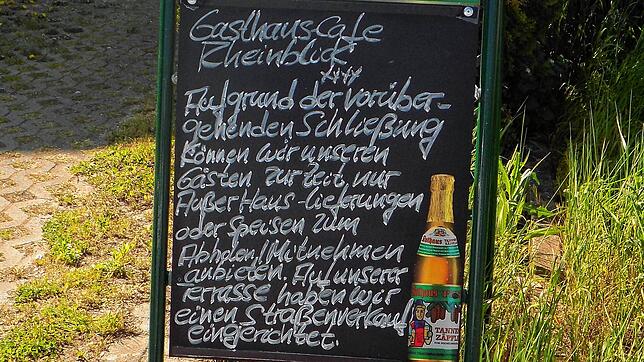 Gasthaus Cafe
Rheinblick
Aufgrund der vorüber-
gehenden Schließung
können wir unseren
Gästen zur Zeit nur
Außer Haus-lieferungen
oder Speisen zum
Abholen/Mitnehmen
anbieten. Auf unserer
Terrasse haben wir
einen Straßenverkauf
eingerichtet.
Rothaus
TANNEN
ZÄPFLE